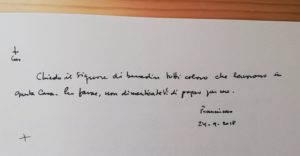 Chiedo il Signore di benedire tutti coloro che lavorano in
questa Casa. Per favore, non dimenticatevi di pregare per me.
Francesco
24-9-2018